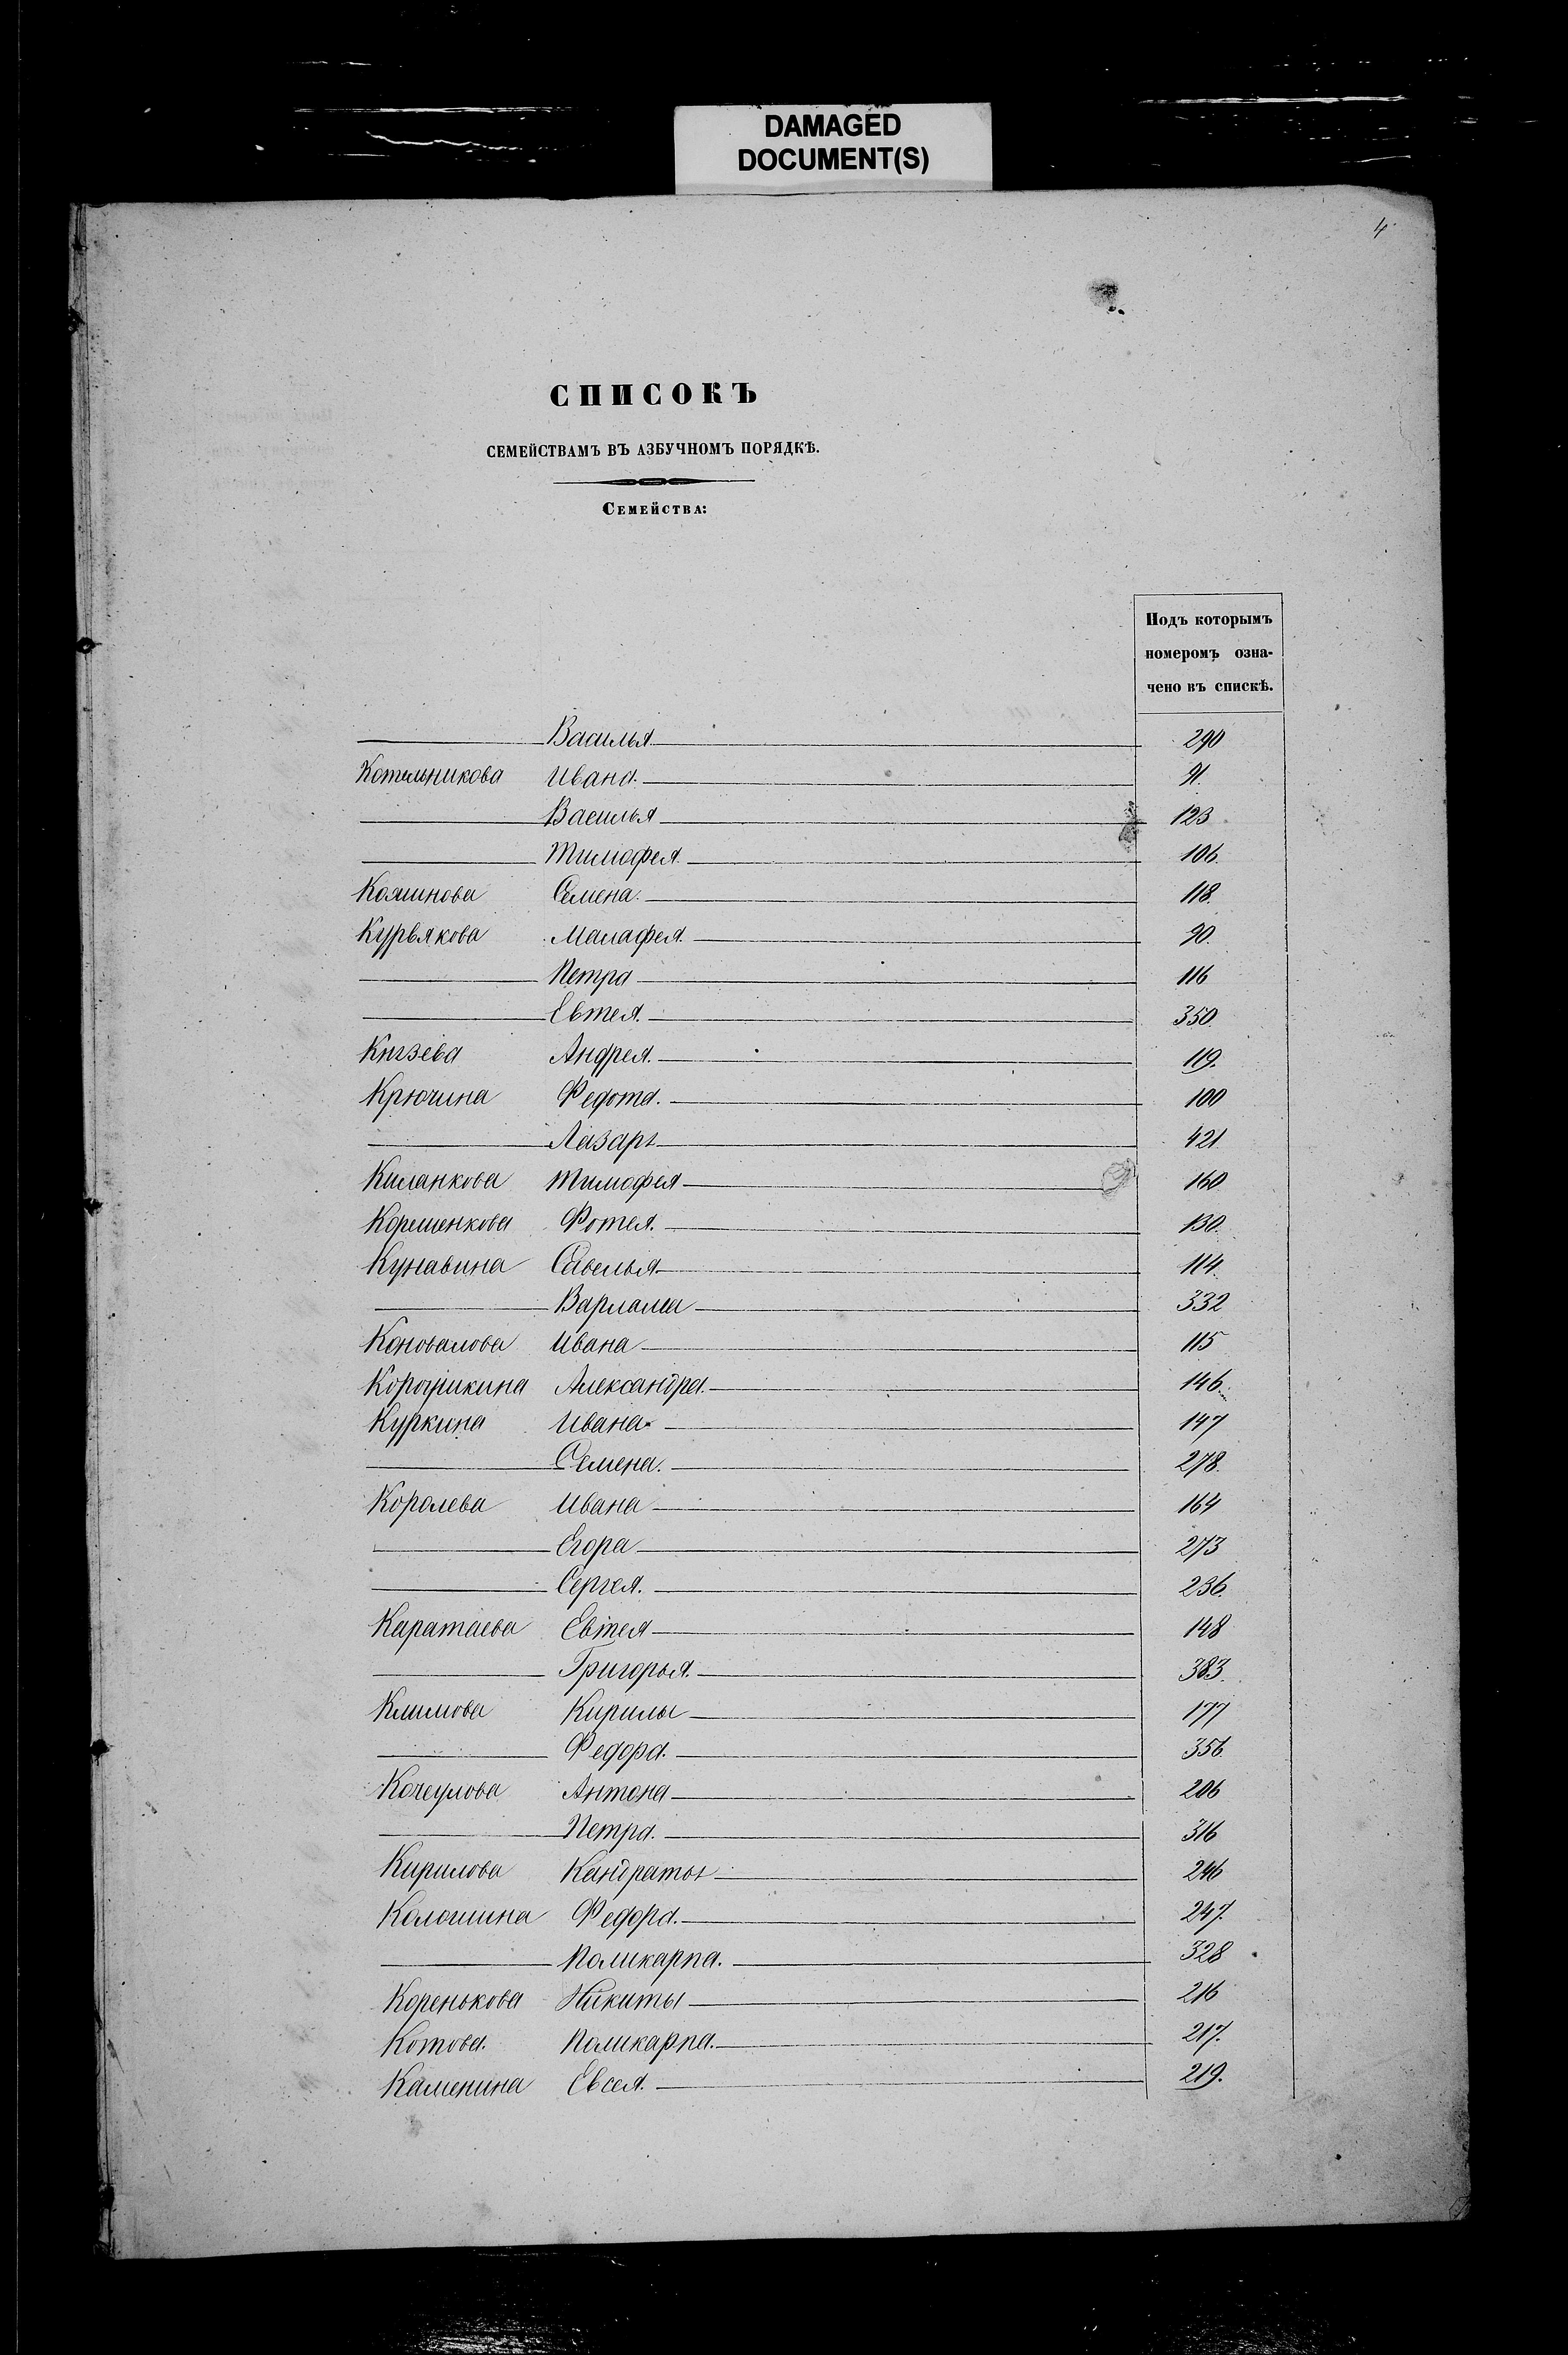 DAMAGED
DOCUMENT(S)
4
СПИСОКЪ
СЕМЕЙСТВАМЪ ВЪ АЗБУЧНОМЪ ПОРЯДКѢ.
СЕМЕЙСТВА:
Подъ которымъ
номеромъ озна-
чено въ спискѣ.
Василья 290
Котельникова Ивана. 91.
Василья 123
Тимофея. 106.
Семена. 118.
Курвякова Малафея. 90.
Петра 116
Евтея. 350.
Князева Андрея. 119.
Крючина Федота. 100
Лазаря 421
Киланкова Тимофея 160
Корешенкова Фотея. 130.
Кунавина Савелья 114.
Варлама 332
Коновалова Ивана 115
Александра. 146.
Куркина Ивана 147
Семена. 278.
Королева Ивана 164
Егора 273
Сергея. 236.
Каратаева Евтея 148
Григорья. 383.
Климова Кирилы 177
Федора. 356.
Кочеулова Антона 206
Петра. 316
Кирилова Кандраты 246
Колошина Федора. 247.
Поликарпа. 328
Коренькова Никиты 216
Котова. Поликарпа. 217.
Каменина Евсея. 219.